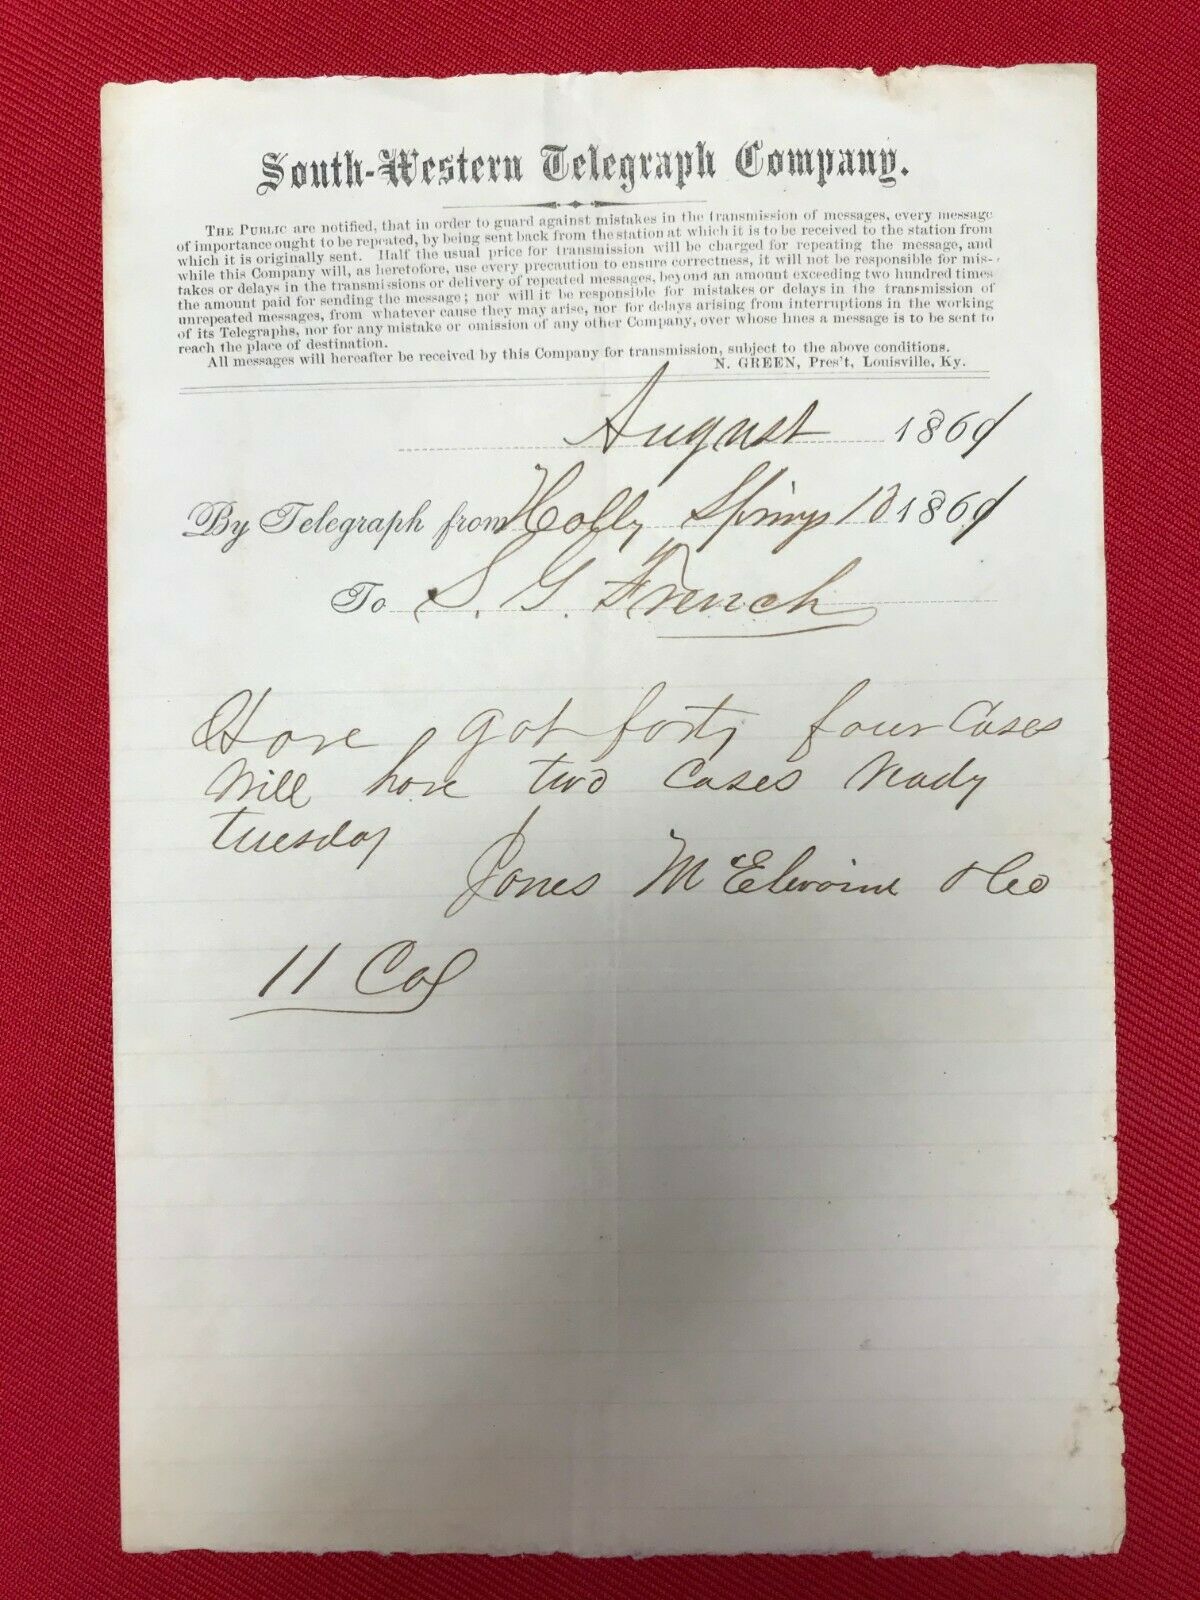 South-Western Telegraph Company.
THE PUBLIC are notified, that in order to guard against mistakes in the transmission of messages, every message
of importance ought to be repeated, by being sent back from the station at which it is to be received to the station from
which it is originally sent. Half the usual price for transmission will be charged for repeating the message, and
while this Company will, as heretofore, use every precaution to ensure correctness, it will not be responsible for mis-
takes or delays in the transmissions or delivery of repeated messages, beyond an amount exceeding two hundred times
the amount paid for sending the message; nor will it be responsible for mistakes or delays in the transmission of
unrepeated messages, from whatever cause they may arise, nor for delays arising from interruptions in the working
of its Telegraphs, nor for any mistake or omission of any other Company, over whose lines a message is to be sent to
reach the place of destination.
All messages will hereafter be received by this Company for transmission, subject to the above conditions.
N. GREEN, Pres't, Louisville, Ky.
August 186
By Telegraph from Holly Springs 186
To S. G. French
Have got forty four Cases
Will have two Cases Ready
tuesday
Jones McElwaine & Co
11 Col